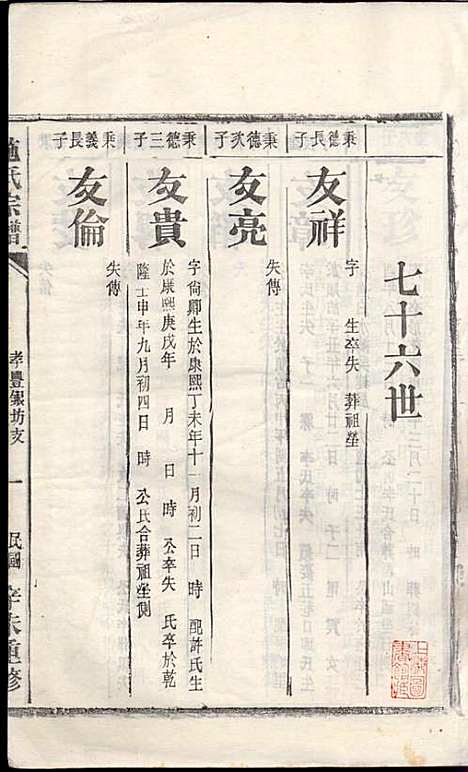 七十六世
秉德長子
友祥
字 生卒失 葬祖塋
秉德次子
友亮
失傳
秉德三子
友貴
字尙卿生於康熙丁未年十一月初二日 時 配許氏生
於康熙庚戌年 月 日 時 公卒失 氏卒於乾
隆壬申年九月初四日 時 公氏合葬祖塋側
秉義長子
友倫
失傳
施氏宗譜
孝豐銀坊支
一
民國
辛未重修